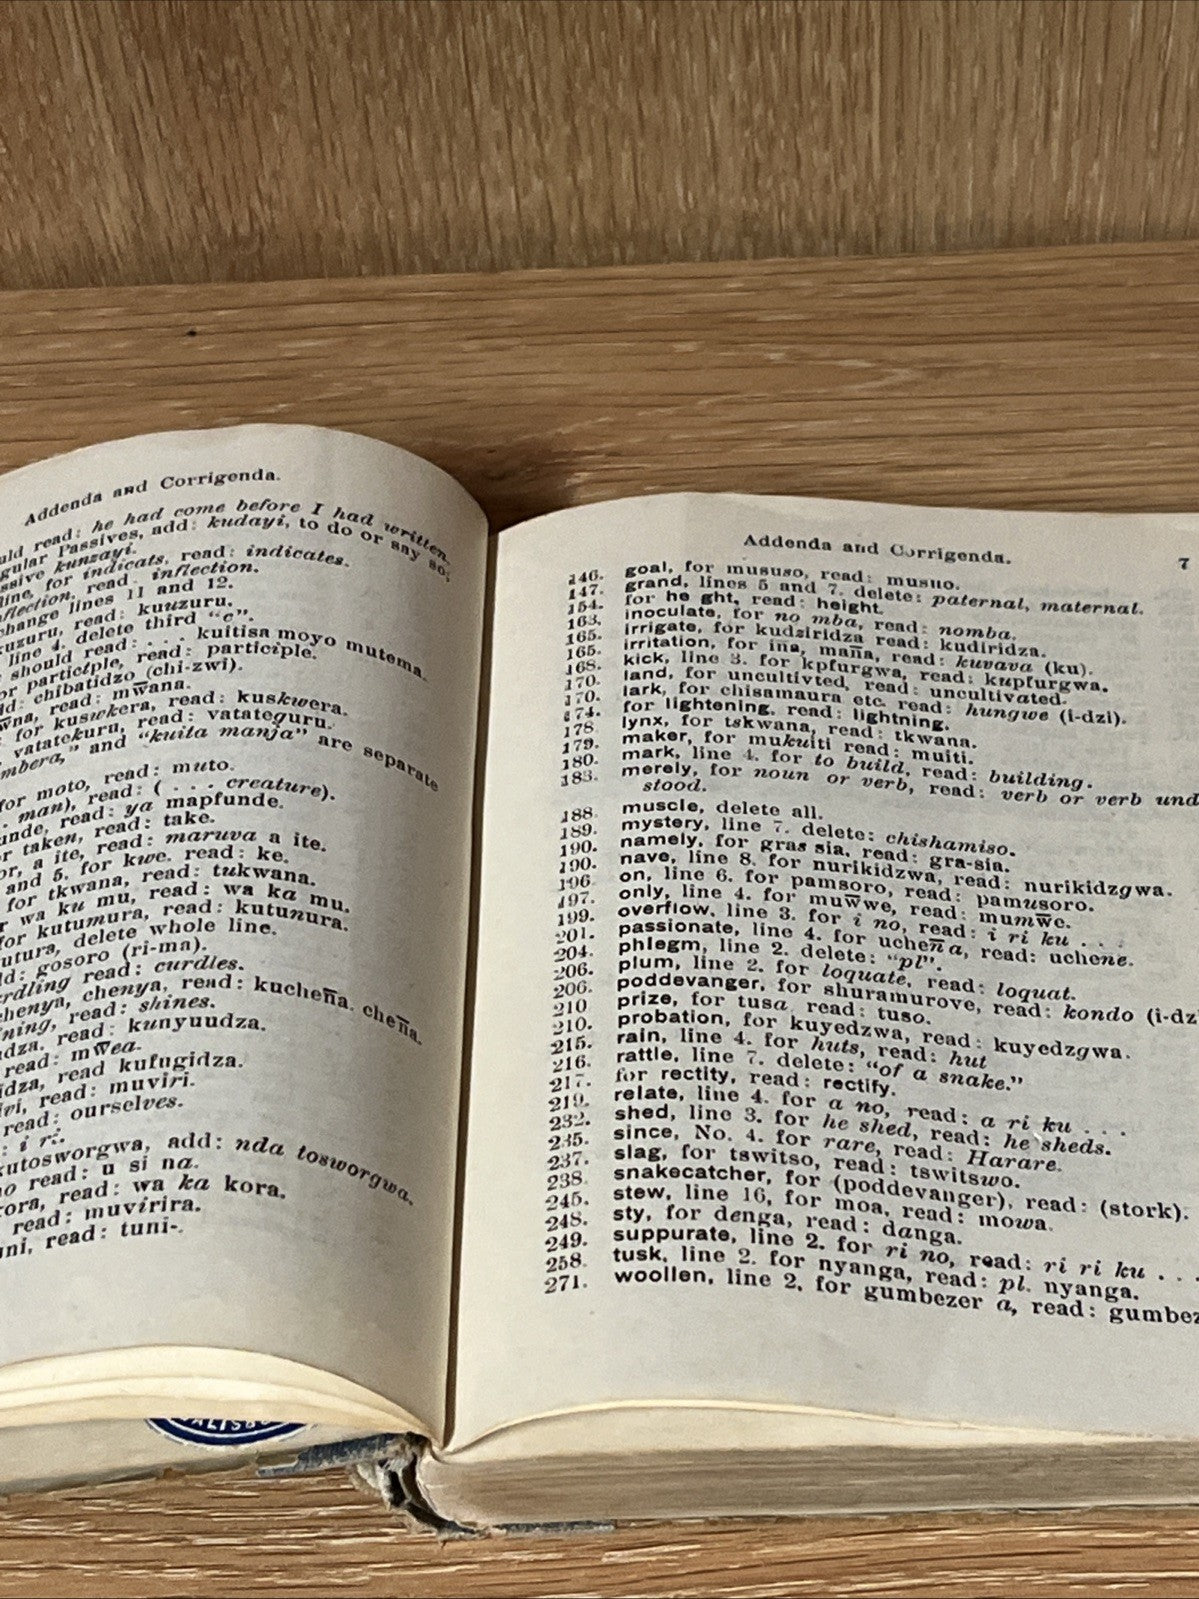 Addenda and Corrigenda.
uld read: he had come before I had written.
gular Passives, add: kudayi, to do or say so;
ssive kunzayi.
line, for indicats, read: indicates.
nflection, read. inflection.
change lines 11 and 12.
kuzuru, read: kuuzuru.
line 4. delete third "c".
should read: . . . kuitisa moyo mutema.
or participle, read: participle.
d: chibatidzo (chi-zwi).
read: mw̅ana.
for kuswkera, read: kuskwera.
vatatekuru, read: vatateguru.
mbera," and "kuita manja" are separate
for moto, read: muto.
man), read: ( . . . creature).
unde, read: ya mapfunde.
r taken, read: take.
or, a ite, read: maruva a ite.
and 5. for kwe. read: ke.
for tkwana, read: tukwana.
r wa ku mu, read: wa ka mu.
for kutumura, read: kutunura.
utura, delete whole line.
ld: gosoro (ri-ma).
rdling read: curdles.
chenya, chenya, read: kuchen̅a. chen̅a.
ning, read: shines.
read: kunyuudza.
read: mw̅ea.
idza, read kufugidza.
ivi, read: muviri.
read: ourselves.
kutosworgwa, add: nda tosworgwa.
no read: u si na.
kora, read: wa ka kora.
read: muvirira.
uni, read: tuni-.
Addenda and Corrigenda. 7
146. goal, for mususo, read: musuo.
147. grand, lines 5 and 7. delete: paternal, maternal.
154. for he ght, read: height.
163. inoculate, for no mba, read: nomba.
165. irrigate, for kudziridza read: kudiridza.
165. irritation, for ina, man̅a, read: kuvava (ku).
168. kick, line 3. for kpfurgwa, read: kupfurgwa.
170. land, for uncultivted, read: uncultivated.
170. lark, for chisamaura etc. read: hungwe (i-dzi).
174. for lightening, read: lightning.
178. lynx, for tskwana, read: tkwana.
179. maker, for mukuiti read: muiti.
180. mark, line 4. for to build, read: building.
183. merely, for noun or verb, read: verb or verb und
stood.
188. muscle, delete all.
189. mystery, line 7. delete: chishamiso.
190. namely, for gras sia, read: gra-sia.
190. nave, line 8. for nurikidzwa, read: nurikidzgwa.
196. on, line 6. for pamsoro, read: pamusoro.
197. only, line 4. for muw̅we, read: mumw̅e.
199. overflow, line 3. for i no, read: i ri ku . . .
201. passionate, line 4. for uchen̅a, read: uchene.
204. phlegm, line 2. delete: "pl".
206. plum, line 2. for loquate, read: loquat.
206. poddevanger, for shuramurove, read: kondo (i-dz
210 prize, for tusa, read: tuso.
210. probation, for kuyedzwa, read: kuyedzgwa.
215. rain, line 4. for huts, read: hut
216. rattle, line 7. delete: "of a snake."
217. for rectity, read: rectify.
219. relate, line 4. for a no, read: a ri ku . . .
232. shed, line 3. for he shed, read: he sheds.
235. since, No. 4. for rare, read: Harare.
237. slag, for tswitso, read: tswitswo.
238. snakecatcher, for (poddevanger), read: (stork).
245. stew, line 16, for moa, read: mowa.
248. sty, for denga, read: danga.
249. suppurate, line 2. for ri no, read: ri ri ku . . .
258. tusk, line 2. for nyanga, read: pl. nyanga.
271. woollen, line 2, for gumbezer a, read: gumbez